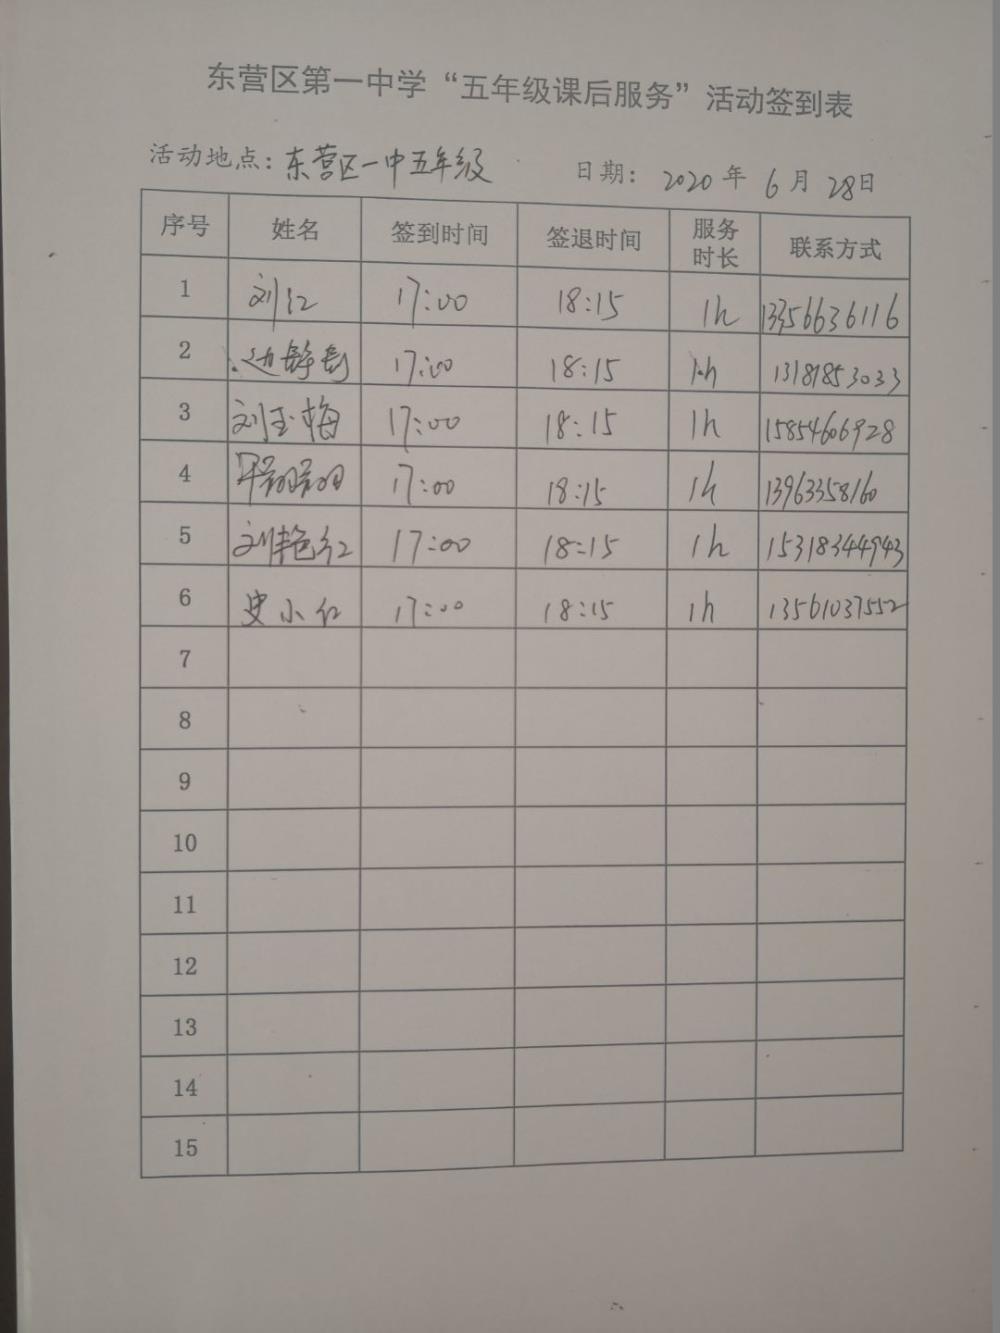 东营区第一中学“五年级课后服务”活动签到表
活动地点：东营区一中五年级 日期：2020年6月28日
序号 姓名 签到时间 签退时间 服务时长 联系方式
1 刘红 17:00 18:15 1h 13356636116
2 边静 17:00 18:15 1h 13181853033
3 刘玉梅 17:00 18:15 1h 15854606928
4 17:00 18:15 1h 13963358160
5 刘艳红 17:00 18:15 1h 15318344943
6 史小红 17:00 18:15 1h 13561037552
7
8
9
10
11
12
13
14
15